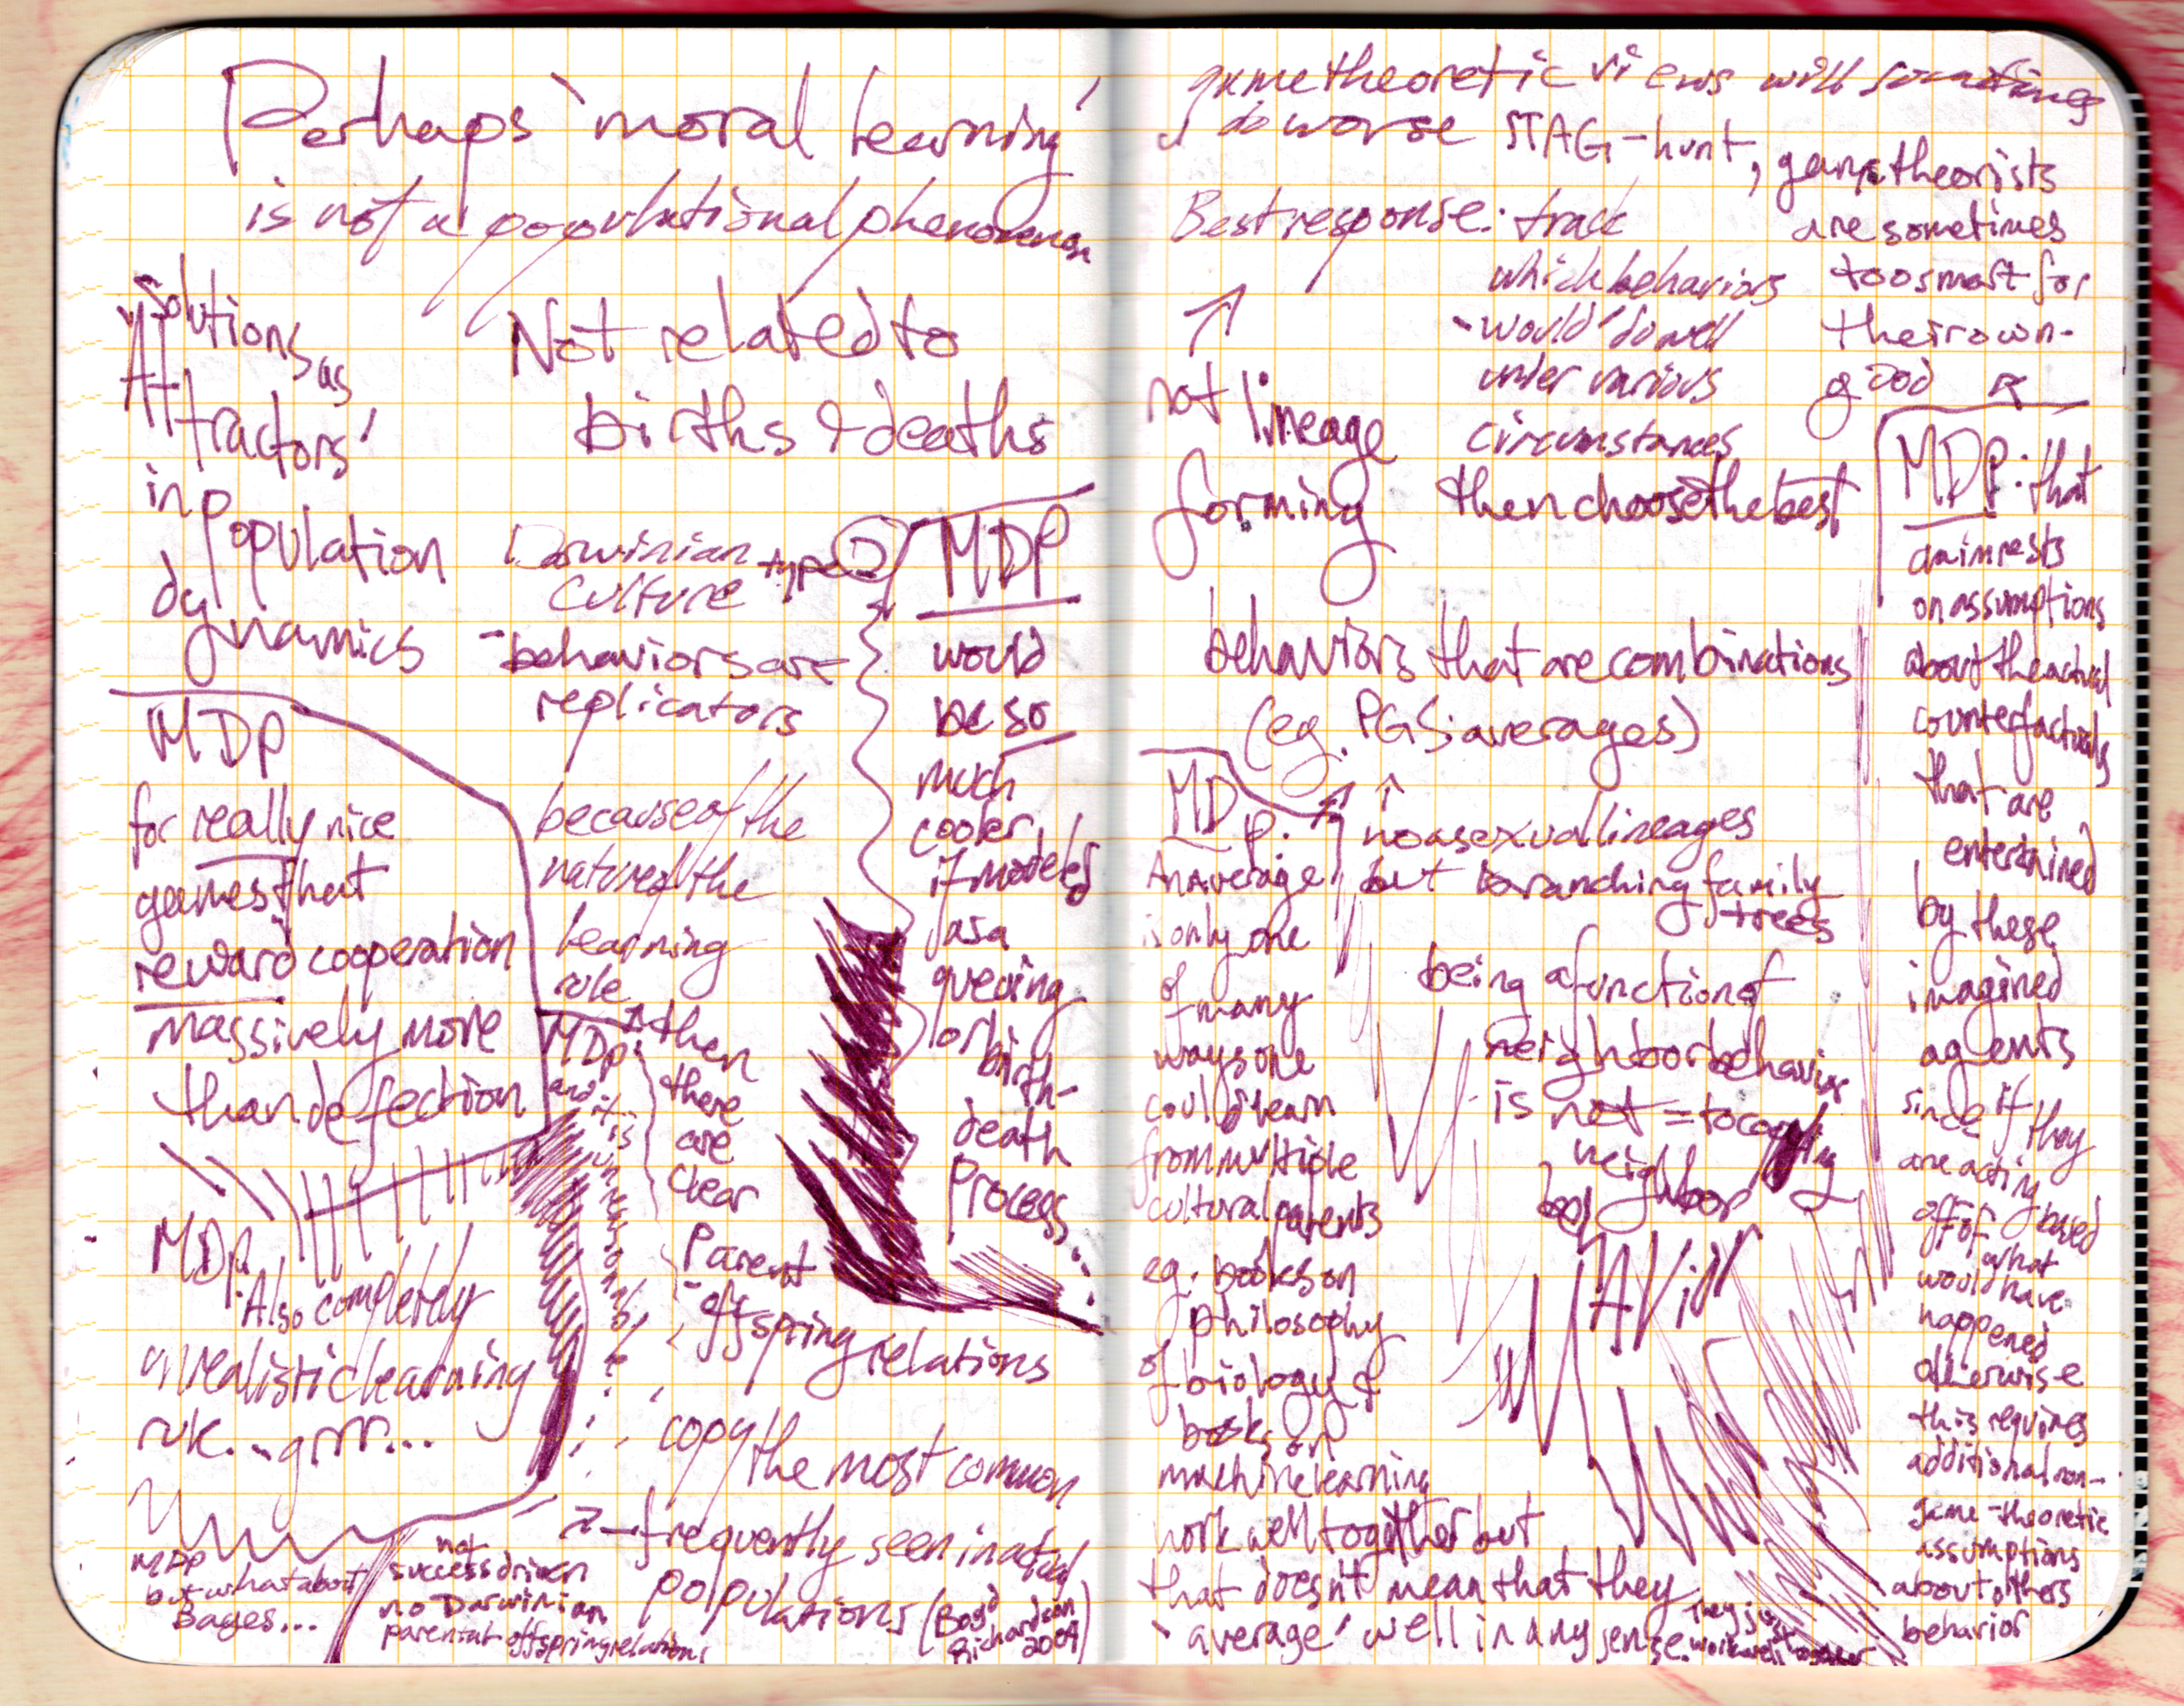 Perhaps 'moral learning'
is not a populational phenomenon
Solutions as
'Attractors'
in
Population
dynamics
Not related to
births & deaths
Darwinian
Culture type ①
- behaviors are
replicators
because of the
nature of the
learning
rule
then
there
are
clear
Parent
- offspring relations
copy
the most common
→ frequently seen in actual
populations (Boyd
Richardson
2004)
not
success driven
no Darwinian
parental offspring relations
MDP
would
be so
much
cooler
if modeled
as a
queuing
or birth-
death
Process
MDP
for really nice
games that
reward cooperation
massively more
than defection
MDP:
and it is
unreasonable
MDP:
Also completely
unrealistic learning
rule... grrr...
MDP
but what about
Bayes...
game theoretic views will sometimes
do worse STAG-hunt, game theorists
are sometimes
too smart for
their own-
good
Best response: track
which behaviors
- would do well
under various
circumstances
then choose the best
↑
not lineage
forming
behaviors that are combinations
(eg. PGS: averages)
↑
no asexual lineages
but branching family
trees
being a function of
neighbor behavior
is not = to copying
neighbor
beh
AVior
MDP:
An average
is only one
of many
ways one
could learn
from multiple
cultural parents
eg. books on
philosophy
of biology &
books on
machine learning
work well together but
that doesn't mean that they
'average' well in any sense. They just
work well together
MDP: that
claim rests
on assumptions
about the actual
counterfactuals
that are
entertained
by these
imagined
agents
since if they
are acting
off of based
what
would have
happened
otherwise
this requires
additional non-
game-theoretic
assumptions
about others
behavior